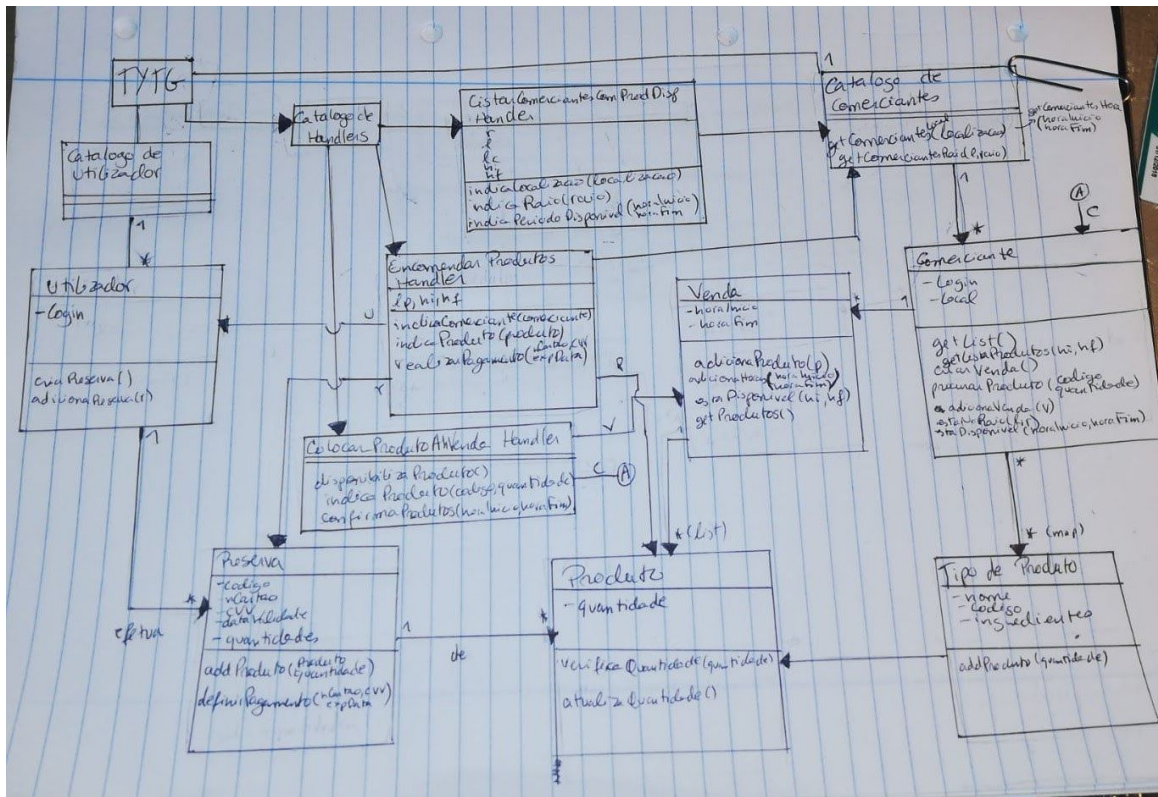 TYTG
Catalogo de
Utilizador
1
*
Utilizador
- Login
criaReserva()
adicionaReserva(r)
1
efetua
*
Catalogo de
Handlers
ListarComerciantesComProdDisp
Handler
r
l
lc
hi
hf
indicaLocalizacao(localizacao)
indicaRaio(raio)
indicaPeriodoDisponivel(horaInicio
horaFim
1
Catalogo de
Comerciantes
getComerciantesLocal(localizacao)
getComerciantesRaio(l,raio)
getComerciantesHora
(horaInicio
horaFim)
1
*
A
C
Encomendar Produtos
Handler
lp, hi, hf
indicaComerciante(comerciante)
indicaProduto(produto)
realizaPagamento(nCartao, cvv
expData)
U
r
P
Venda
- horaInicio
- horaFim
adicionaProduto(p)
adicionaHoras(horaInicio
horaFim)
estaDisponivel(hi, hf)
getProdutos()
*
1
1
* (list)
Comerciante
- Login
- Local
getList()
getListaProdutos(hi, hf)
criarVenda()
procurarProduto(codigo
quantidade)
adicionaVenda(v)
estaNoRaio(l,r)
estaDisponivel(horaInicio, horaFim)
*
* (map)
Colocar Produto AVenda Handler
disponibilizaProduto()
indicaProduto(codigo, quantidade)
confirmaProdutos(horaInicio, horaFim)
V
C
A
Reserva
- codigo
- nCartao
- cvv
- dataValidade
- quantidades
addProduto(produto
quantidade)
definirPagamento(nCartao, cvv
expData)
1
de
*
Produto
- quantidade
verificaQuantidade(quantidade)
atualizaQuantidade()
Tipo de Produto
- nome
- codigo
- ingredientes
addProduto(quantidade)